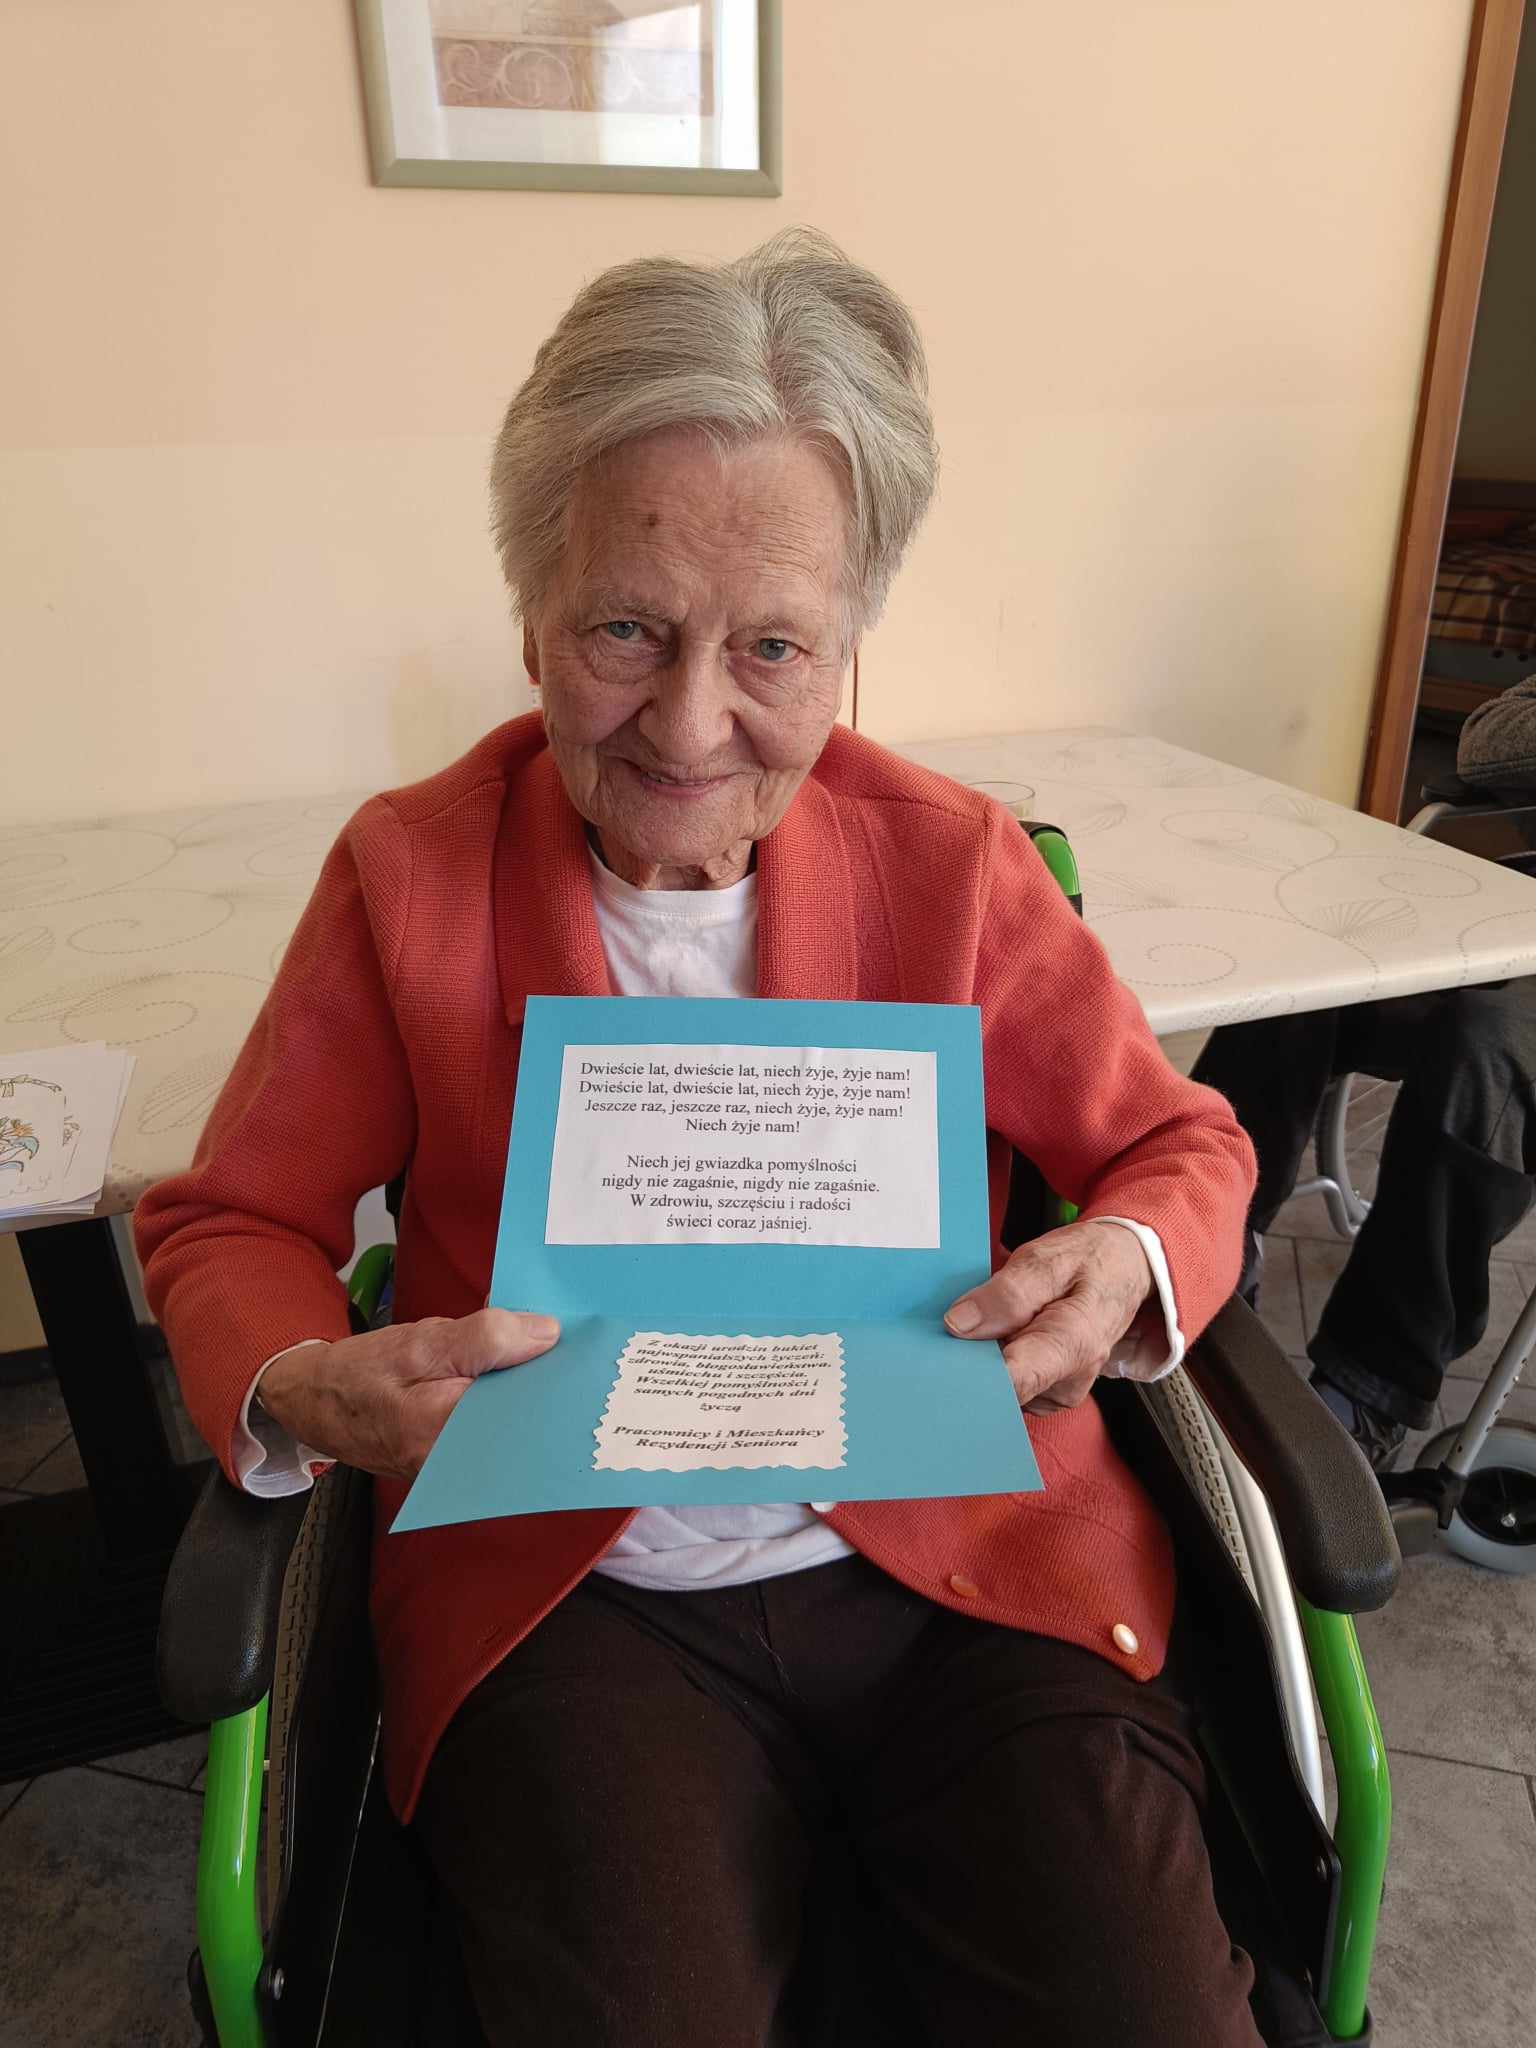 Dwieście lat, dwieście lat, niech żyje, żyje nam!
Dwieście lat, dwieście lat, niech żyje, żyje nam!
Jeszcze raz, jeszcze raz, niech żyje, żyje nam!
Niech żyje nam!
Niech jej gwiazdka pomyślności
nigdy nie zagaśnie, nigdy nie zagaśnie.
W zdrowiu, szczęściu i radości
świeci coraz jaśniej.
Z okazji urodzin bukiet
najwspanialszych życzeń:
zdrowia, błogosławieństwa,
uśmiechu i szczęścia.
Wszelkiej pomyślności i
samych pogodnych dni
życzą
Pracownicy i Mieszkańcy
Rezydencji Seniora